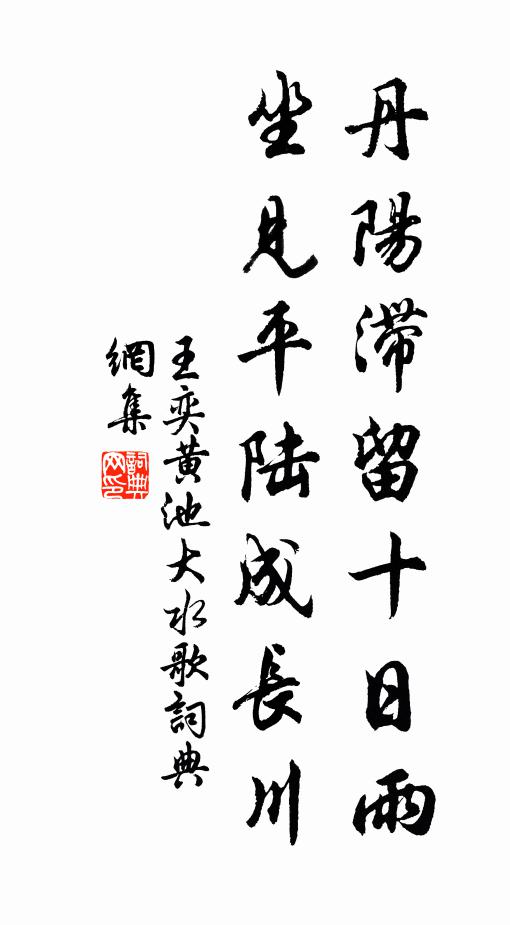 丹陽滯留十日雨
坐見平陆成長川
王奕黄池大水歌詞典
網集
詞典
网印